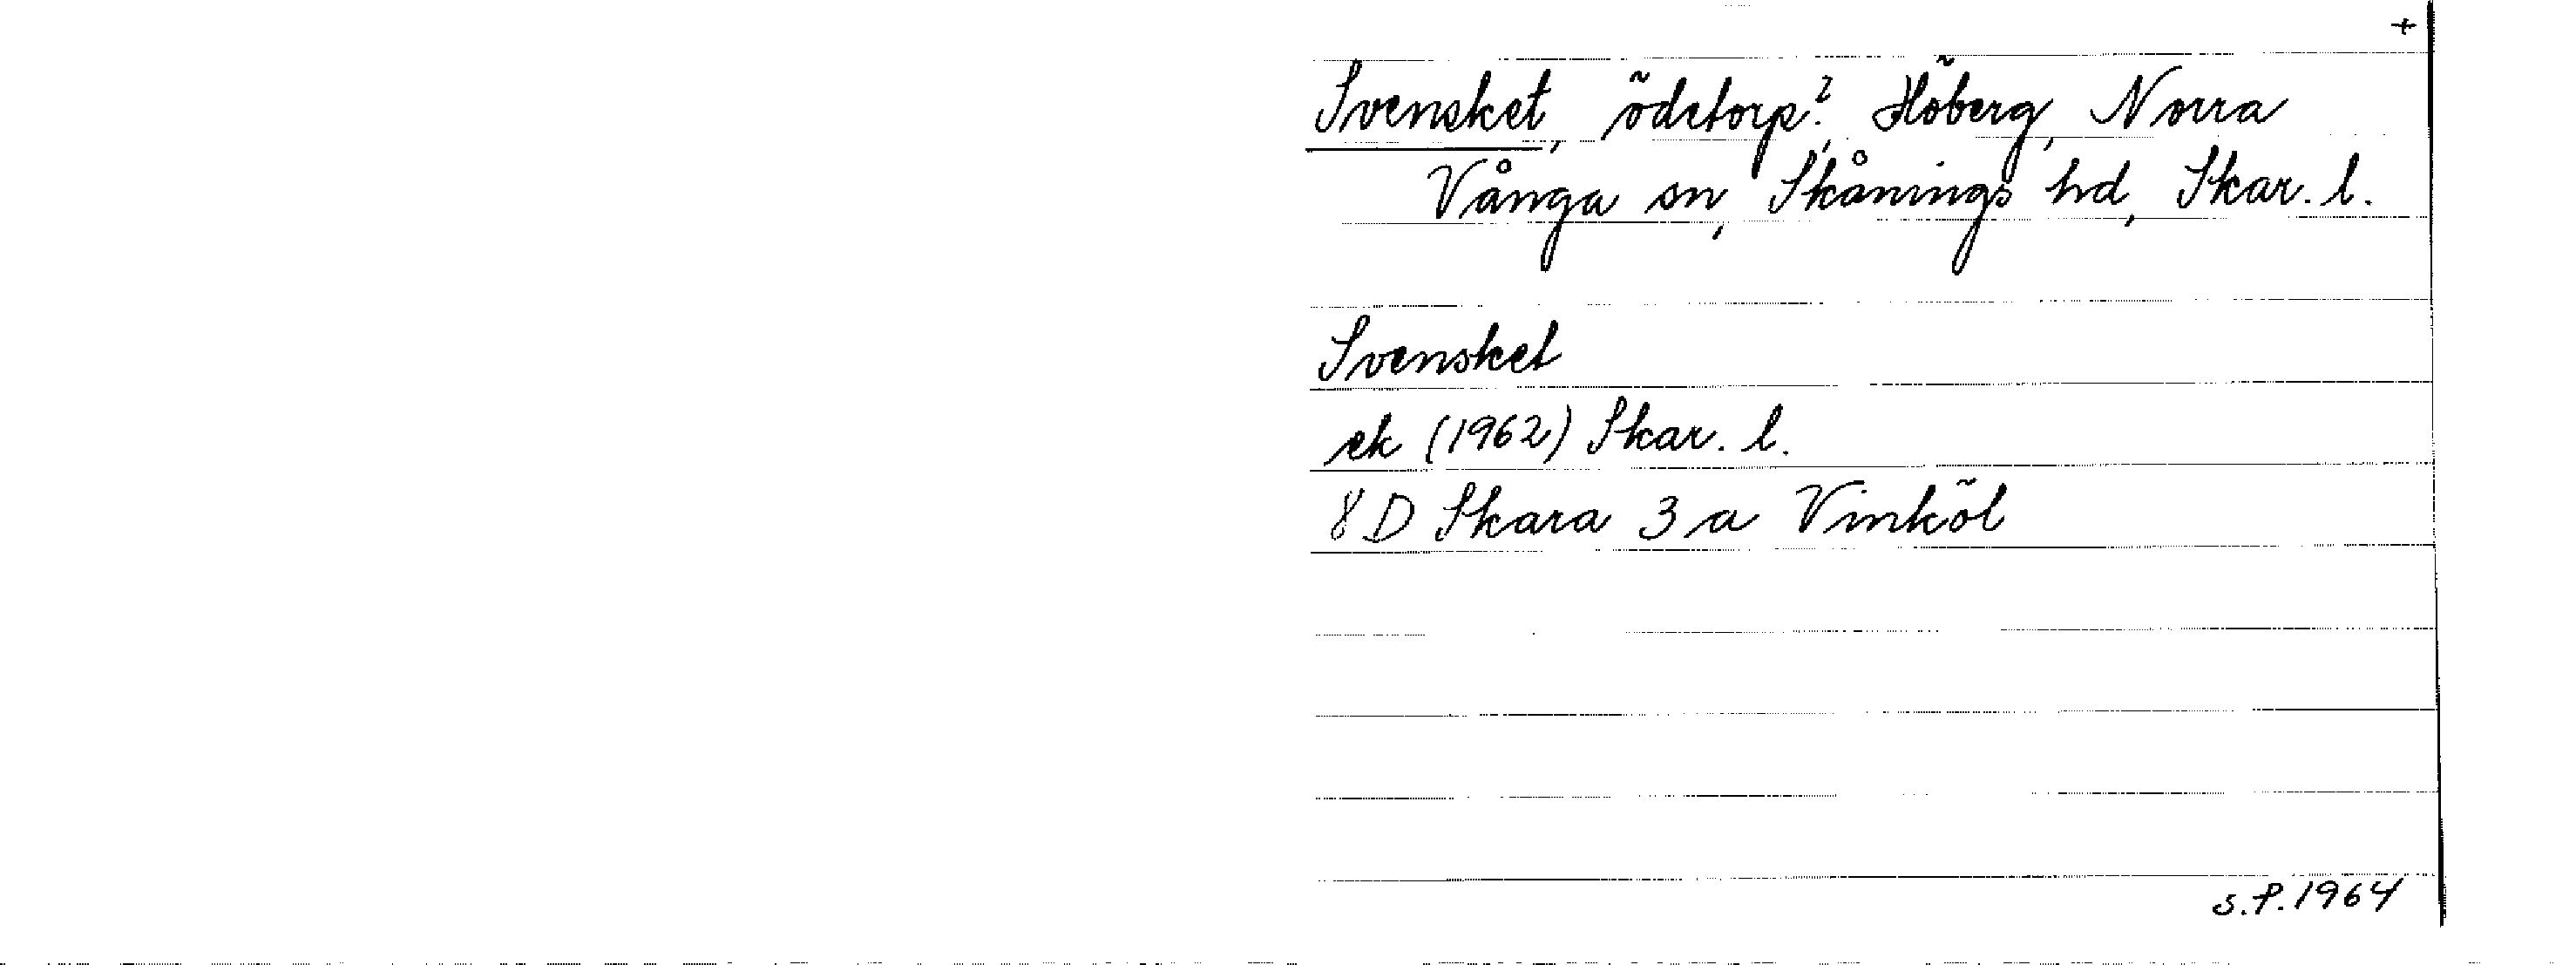 +
Svensket, ödetorp?, Höberg, Norra
Vånga sn, Skånings hd, Skar. l.
Svensket
ek (1962) Skar. l.
8 D Skara 3 a Vinköl
S.P. 1964